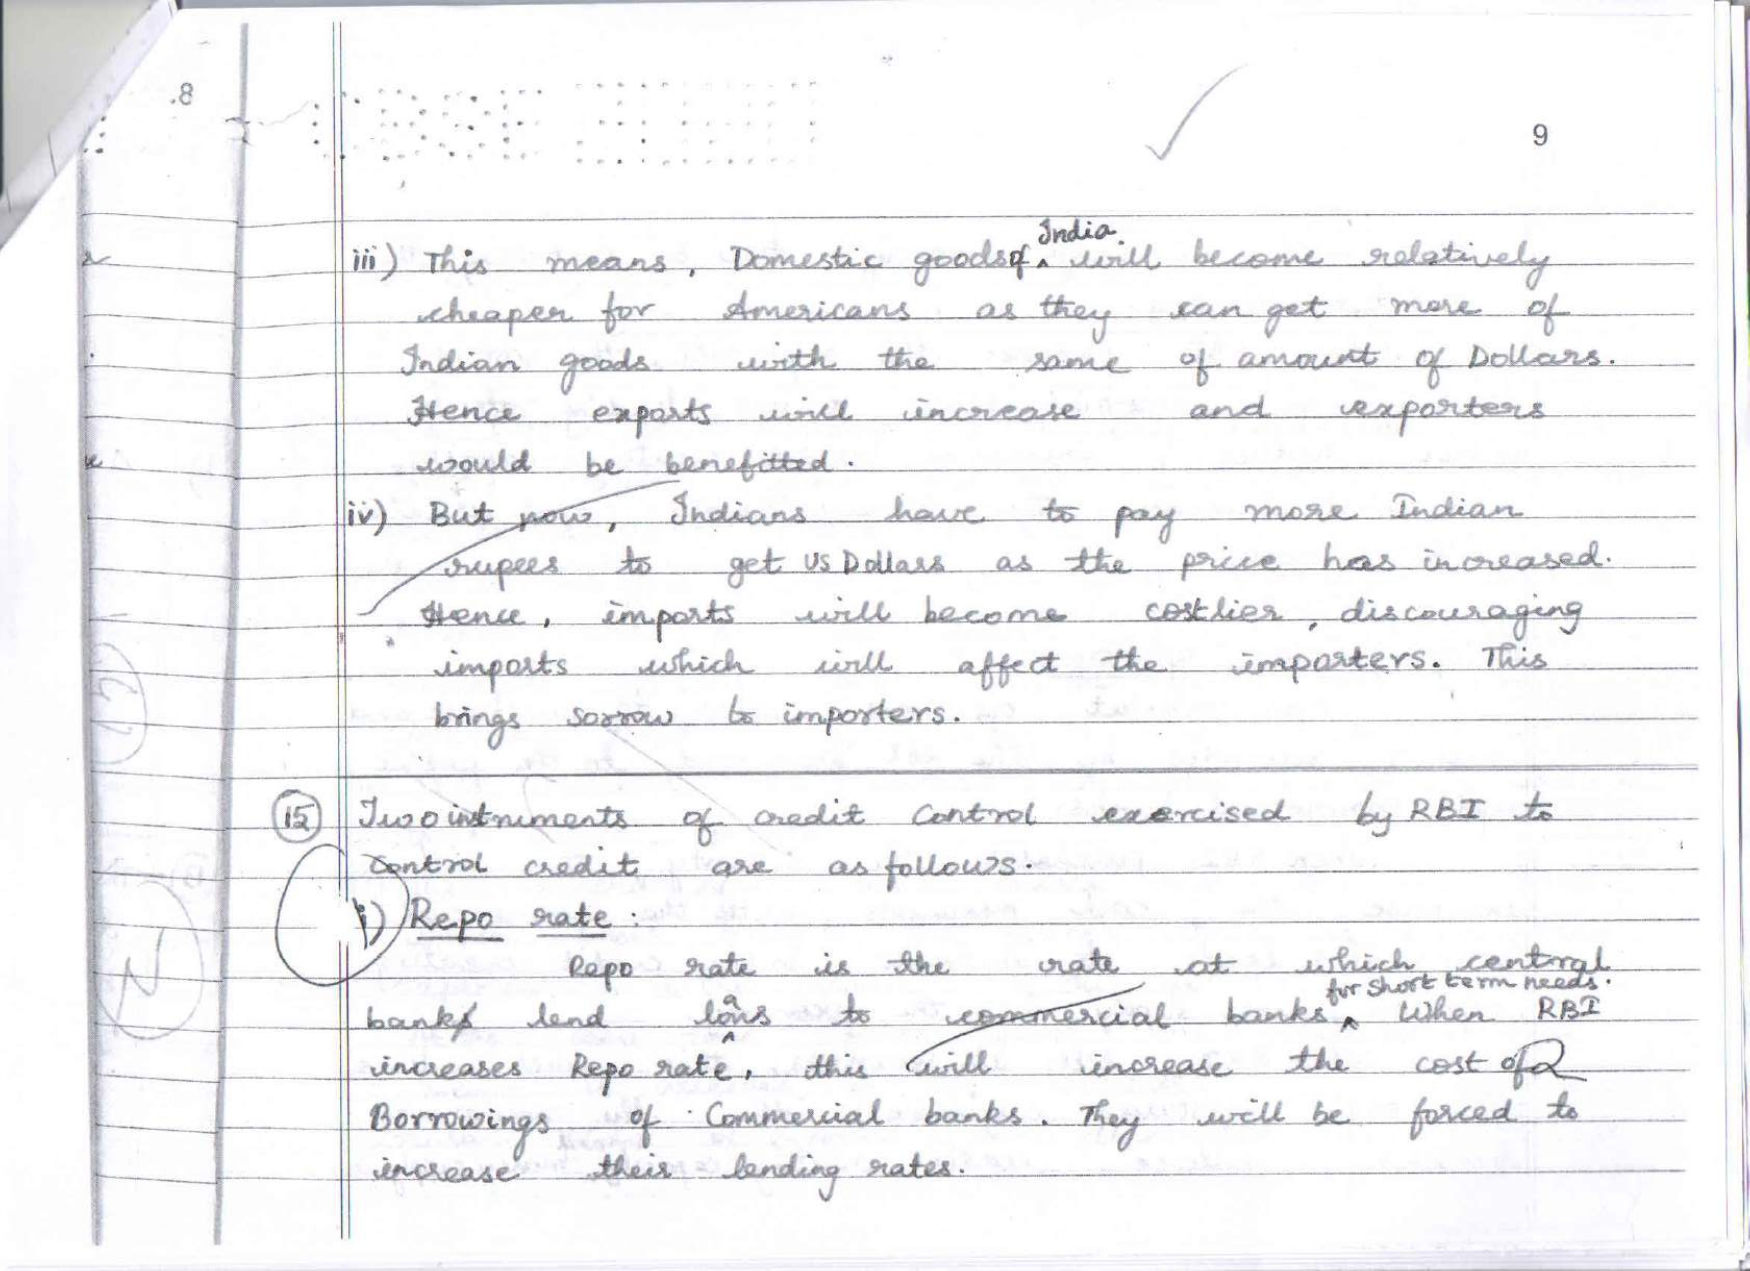 .8
9
iii) This means, Domestic goods of India will become relatively
cheaper for Americans as they can get more of
Indian goods with the same of amount of Dollars.
Hence exports will increase and exporters
would be benefitted.
iv) But now, Indians have to pay more Indian
rupees to get US Dollars as the price has increased.
Hence, imports will become costlier, discouraging
imports which will affect the importers. This
brings sorrow to importers.
15 Two instruments of credit Control exercised by RBI to
control credit are as follows.
i) Repo rate:
Repo rate is the rate at which central
bank lend loans to commercial banks for short term needs. When RBI
increases Repo rate, this will increase the cost of
Borrowings of Commercial banks. They will be forced to
increase their lending rates.